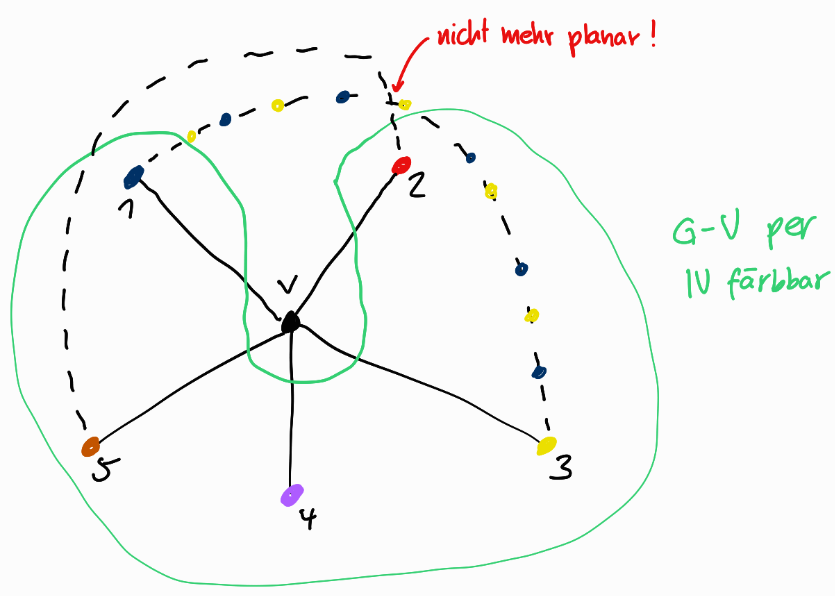 nicht mehr planar !
1
2
V
G-V per
IV färbbar
5
3
4